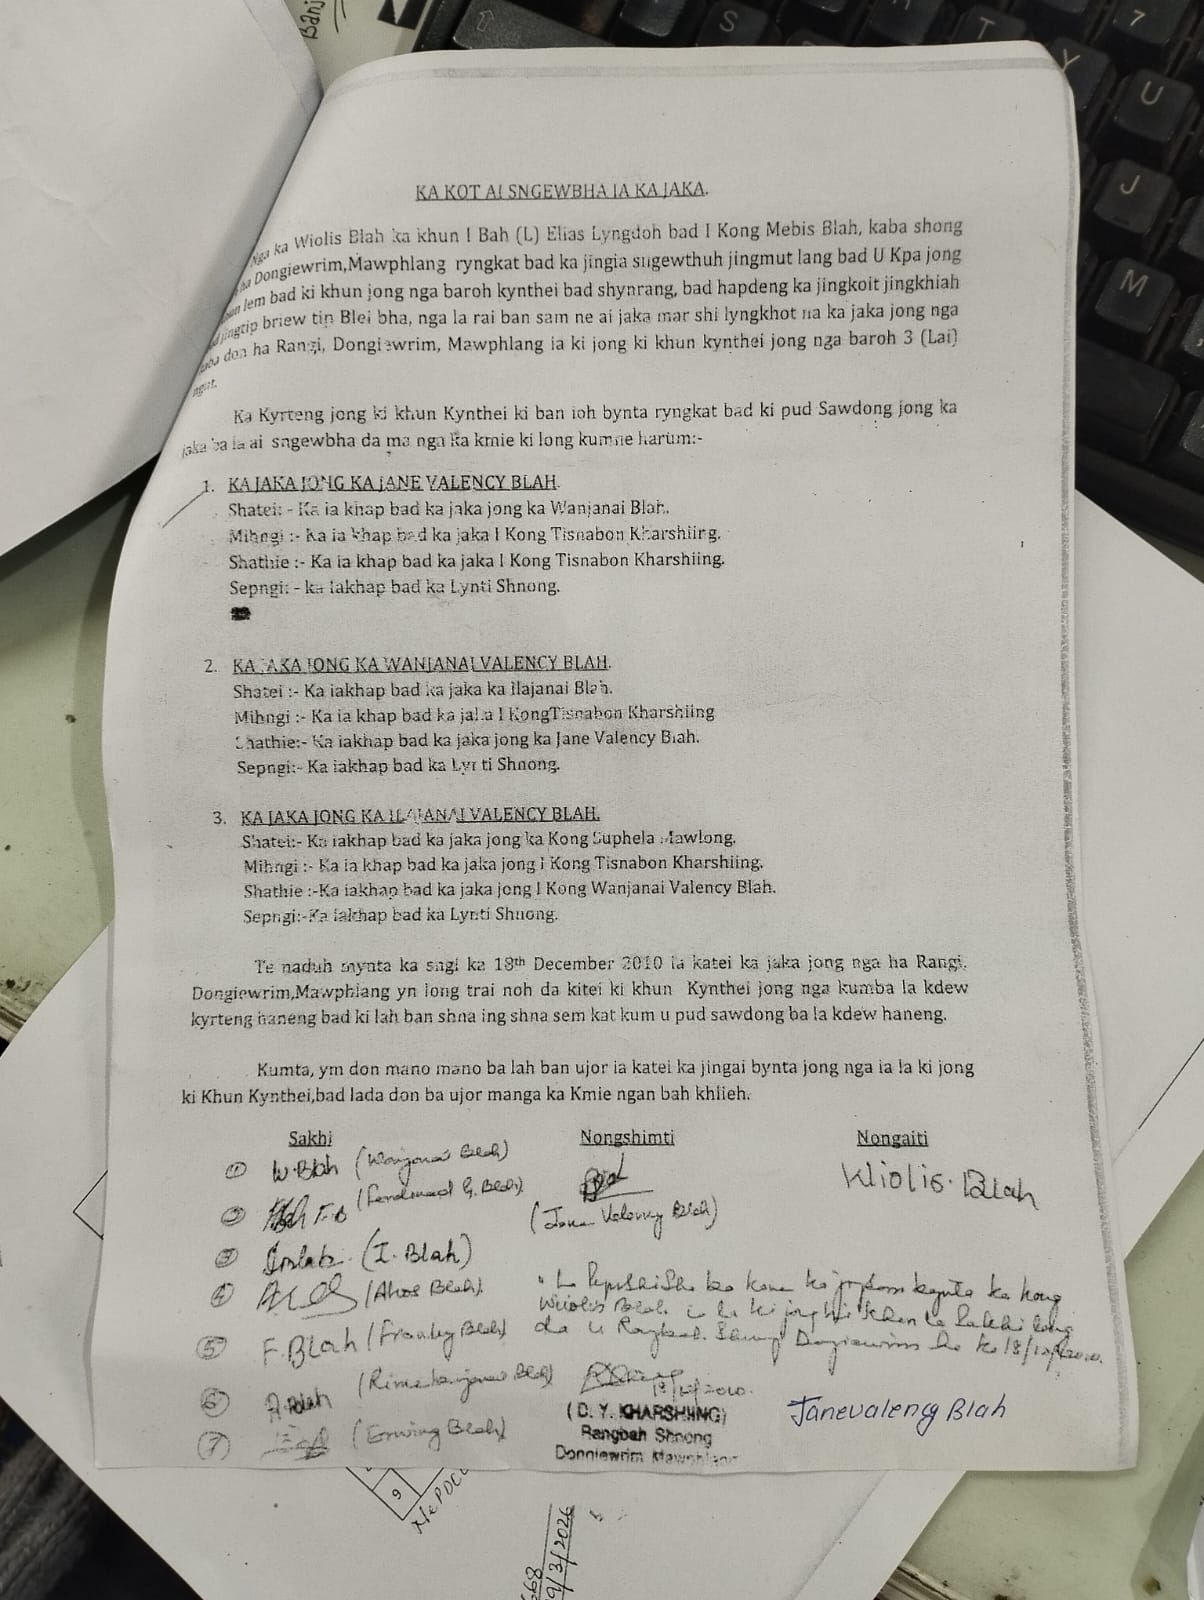 KA KOT AI SNGEWBHA IA KA JAKA.
Nga ka Wiolis Blah ka khun I Bah (L) Elias Lyngdoh bad I Kong Mebis Blah, kaba shong
ha Dongiewrim,Mawphlang ryngkat bad ka jingia sngewthuh jingmut lang bad U Kpa jong
lem bad ki khun jong nga baroh kynthei bad shynrang, bad hapdeng ka jingkoit jingkhiah
jingtip briew tip Blei bha, nga la rai ban sam ne ai jaka mar shi lyngkhot na ka jaka jong nga
kaba don ha Rangi, Dongiewrim, Mawphlang ia ki jong ki khun kynthei jong nga baroh 3 (Lai)
ngut.
Ka Kyrteng jong ki khun Kynthei ki ban ioh bynta ryngkat bad ki pud Sawdong jong ka
jaka ba la ai sngewbha da ma nga ka kmie ki long kumne harum:-
1. KA JAKA JONG KA JANE VALENCY BLAH.
Shatei: - Ka ia khap bad ka jaka jong ka Wanjanai Blah.
Mihngi :- Ka ia khap bad ka jaka I Kong Tisnabon Kharshiing.
Shathie :- Ka ia khap bad ka jaka I Kong Tisnabon Kharshiing.
Sepngi: - ka iakhap bad ka Lynti Shnong.
2. KA JAKA JONG KA WANJANAI VALENCY BLAH.
Shatei :- Ka iakhap bad ka jaka ka Ilajanai Blah.
Mihngi :- Ka ia khap bad ka jaka I KongTisnabon Kharshiing
Shathie:- Ka iakhap bad ka jaka jong ka Jane Valency Blah.
Sepngi:- Ka iakhap bad ka Lynti Shnong.
3. KA JAKA JONG KA ILAJANAI VALENCY BLAH.
Shatei:- Ka iakhap bad ka jaka jong ka Kong Suphela Mawlong.
Mihngi :- Ka ia khap bad ka jaka jong I Kong Tisnabon Kharshiing.
Shathie :-Ka iakhap bad ka jaka jong I Kong Wanjanai Valency Blah.
Sepngi:-Ka iakhap bad ka Lynti Shnong.
Te naduh mynta ka sngi ka 18th December 2010 ia katei ka jaka jong nga ha Rangi,
Dongiewrim,Mawphlang yn long trai noh da kitei ki khun Kynthei jong nga kumba la kdew
kyrteng haneng bad ki lah ban shna ing shna sem kat kum u pud sawdong ba la kdew haneng.
Kumta, ym don mano mano ba lah ban ujor ia katei ka jingai bynta jong nga ia la ki jong
ki Khun Kynthei,bad lada don ba ujor manga ka Kmie ngan bah khlieh.
Sakhi Nongshimti Nongaiti
1 W. Blah (Wanjanai Blah)
Wiolis. Blah
2 (Ferdinand G. Blah)
(Jane Valency Blah)
3 (I. Blah)
4 (Blah)
5 F. Blah (Franky Blah)
Wiolis Blah
18/12/2010.
6 (Blah)
18/12/2010.
(D. Y. KHARSHIING)
Rangbah Shnong
Dongiewrim Mawphlang
Janevalency Blah
7 (Erwing Blah)
9
9/3/2026